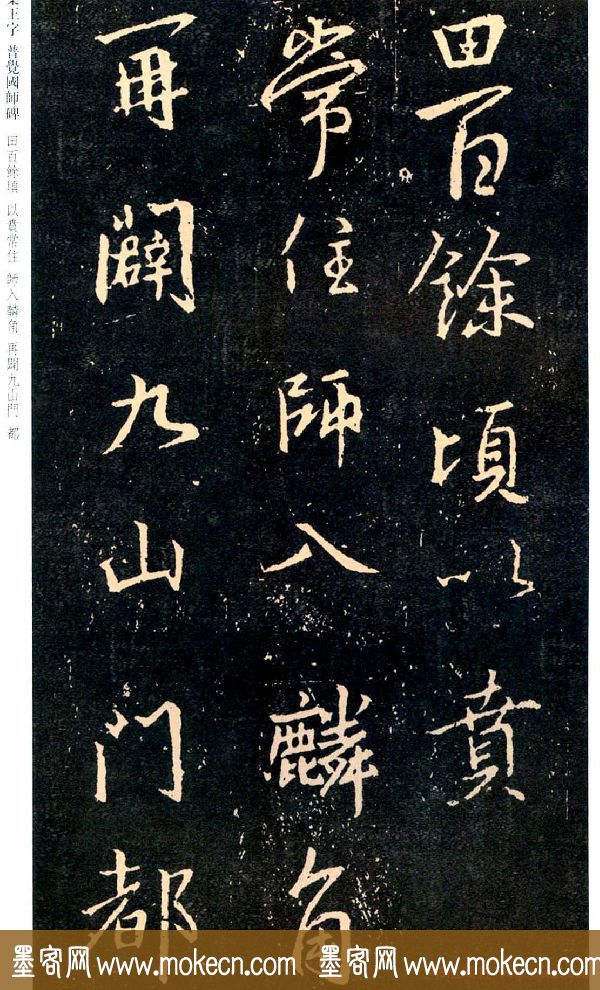 田百餘頃以賁
常住師入麟角
再闢九山門都
王字 普覺國師碑
田百餘頃 以賁常住 師入麟角 再闢九山門 都
墨客网 www.mokecn.com 墨客网 www.mokecn.com